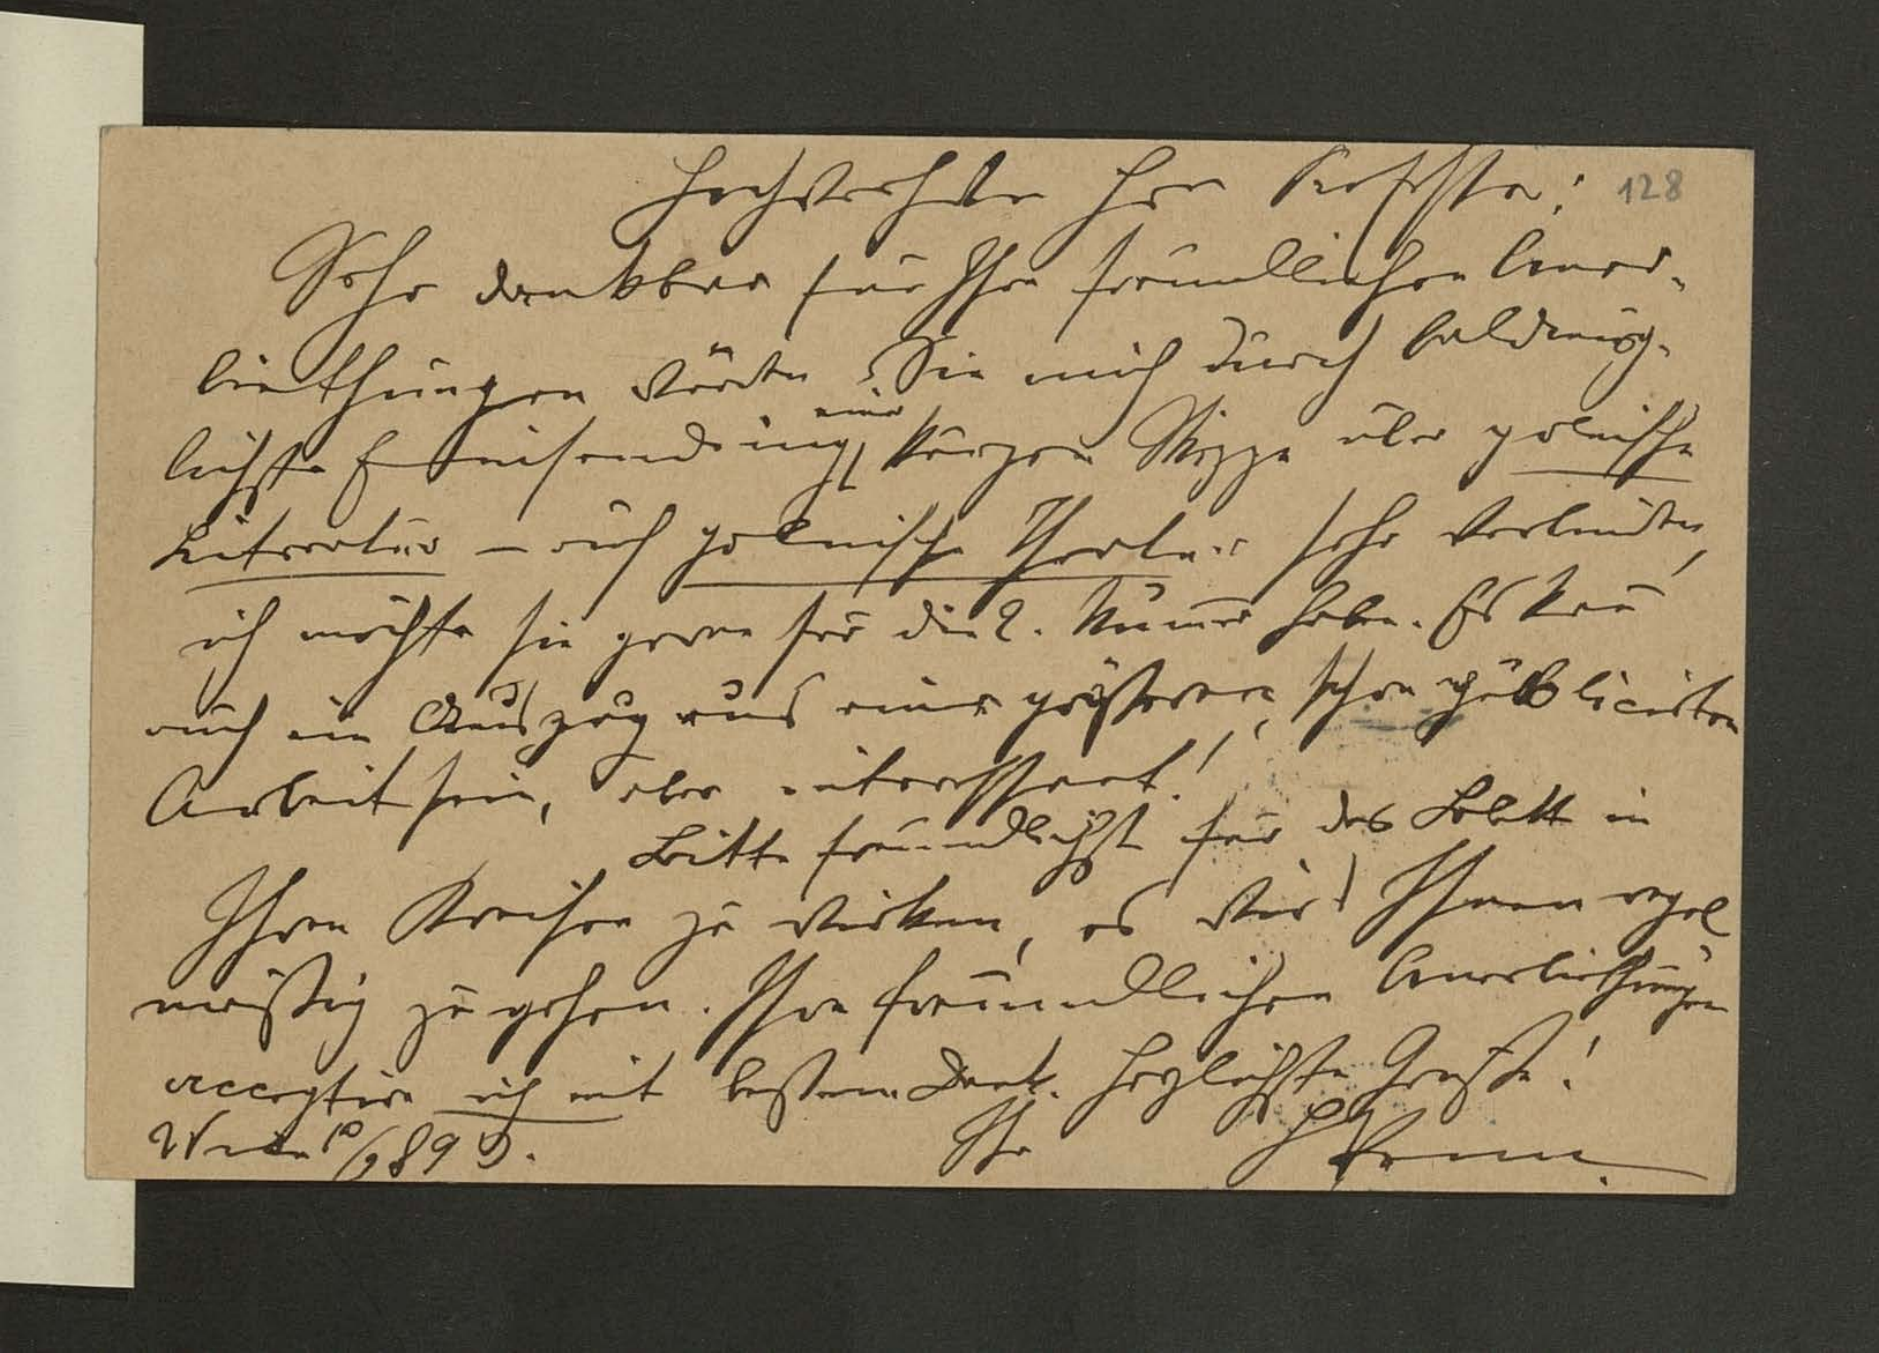 128
Hochverehrter Herr
Sehr dankbar für Ihre freundlichen Aner-
biethungen würden Sie mich durch baldmög-
lichste Einsendung einer kurzen Skizze über polnische
Literatur – auch polnische Theater sehr verbinden,
ich möchte sie gerne für die 2. Num̄er haben. Es kan̄
auch ein Auszug aus einer größeren, schon publicirten
Arbeit sein, aber interessant!
Bitte freundlichst für das Blatt in
Ihren Kreisen zu wirken, es wird Ihnen regel
mäßig zugehen. Ihre freundlichen Anerbiethungen
acceptire ich mit bestem Dank. Herzlichste Grüße!
Wien
Ihr